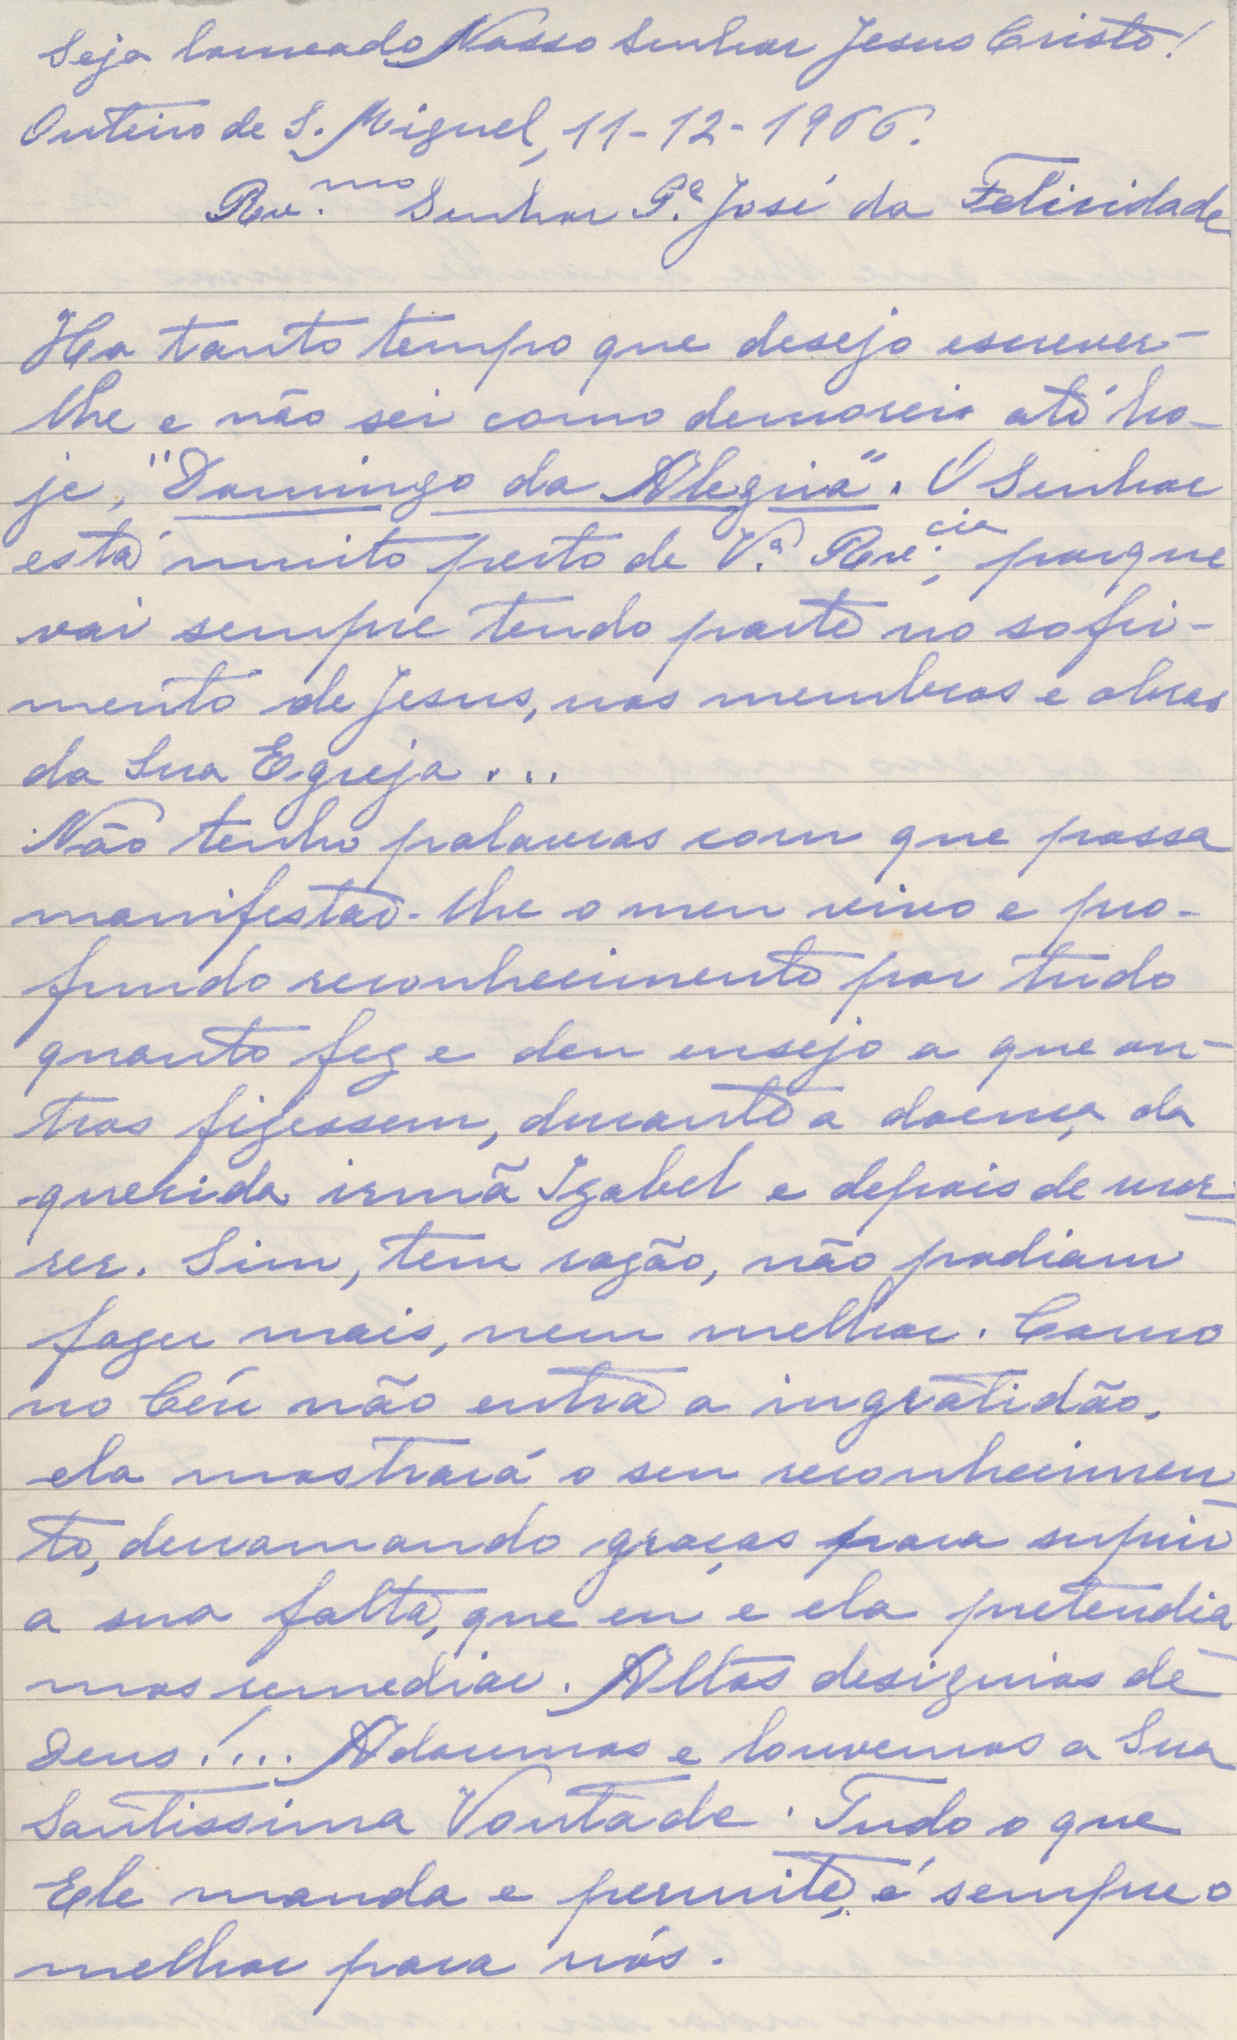 Seja louvado Nosso Senhor Jesus Cristo!
Outeiro de S. Miguel, 11-12-1966.
Rev.mo Senhor P.e José da Felicidade
Ha tanto tempo que desejo escrever-
lhe e não sei como demorei até ho-
je, "Domingo da Alegria". O Senhor
está muito perto de V.a Rev.cia, porque
vai sempre tendo parte no sofri-
mento de Jesus, nos membros e obras
da Sua Egreja...
Não tenho palavras com que possa
manifestar-lhe o meu vivo e pro-
fundo reconhecimento por tudo
quanto fez e deu ensejo a que ou-
tros fizessem, durante a doença da
querida irmã Izabel e depois de mor-
rer. Sim, tem razão, não podiam
fazer mais, nem melhor. Como
no Céu não entra a ingratidão,
ela mostrará o seu reconhecimen
to, derramando graças para suprir
a sua falta, que eu e ela pretendia
mos remediar. Altos designios de
Deus!... Adoremos e louvemos a Sua
Santissima Vontade. Tudo o que
Ele manda e permite, é sempre o
melhor para nós.